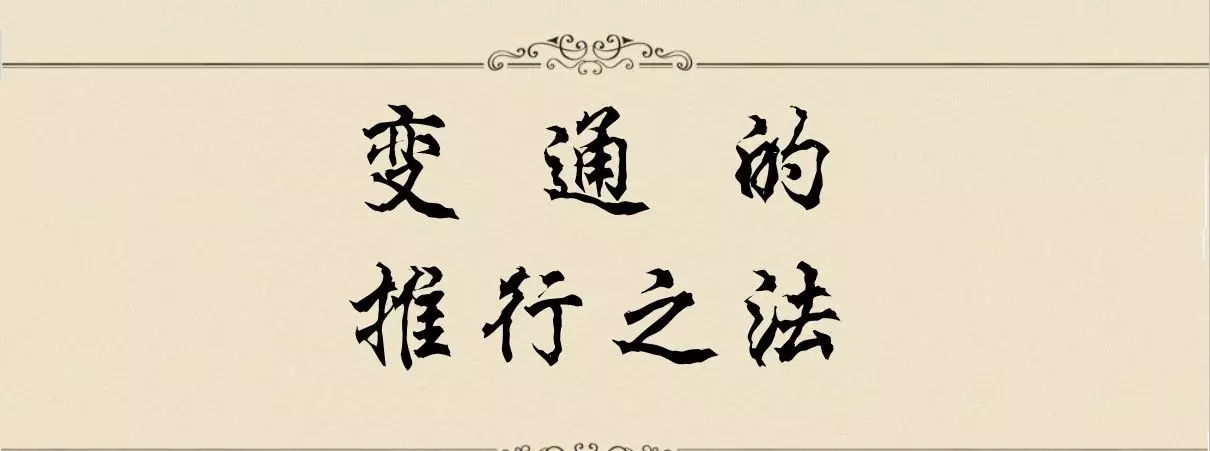 变通的
推行之法